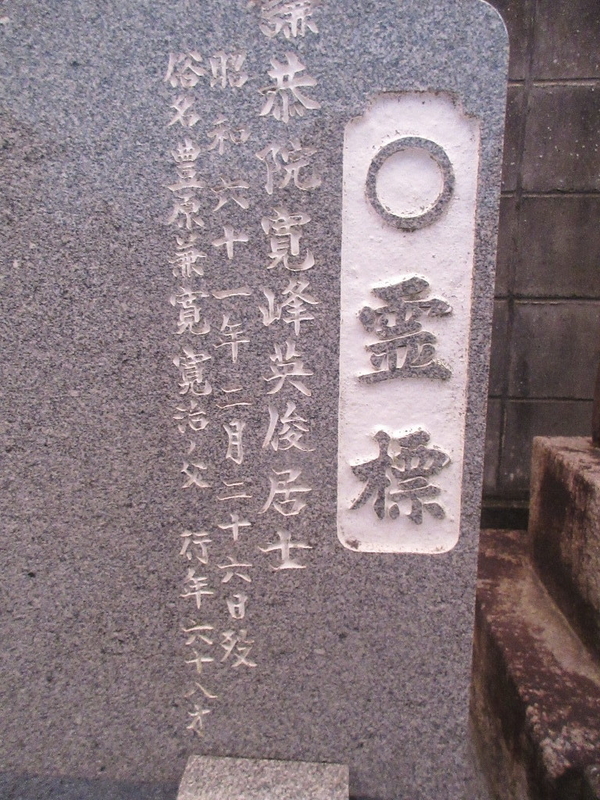 霊標
謙恭院寛峰英俊居士
昭和六十一年二月二十六日歿
俗名豊原兼寛 寛治ノ父 行年六十八才